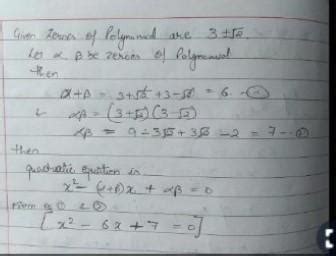 Given zeroes of Polynomial are 3±√2.
Let α β be zeroes of Polynomial
then
α+β = 3+√2 +3-√2 = 6 -①
& αβ = (3+√2)(3-√2)
αβ = 9-3√2+3√2 -2 = 7 -②
then
quadratic equation is
x²-(α+β)x + αβ = 0
from eq ① & ②
[x² - 6x + 7 = 0]